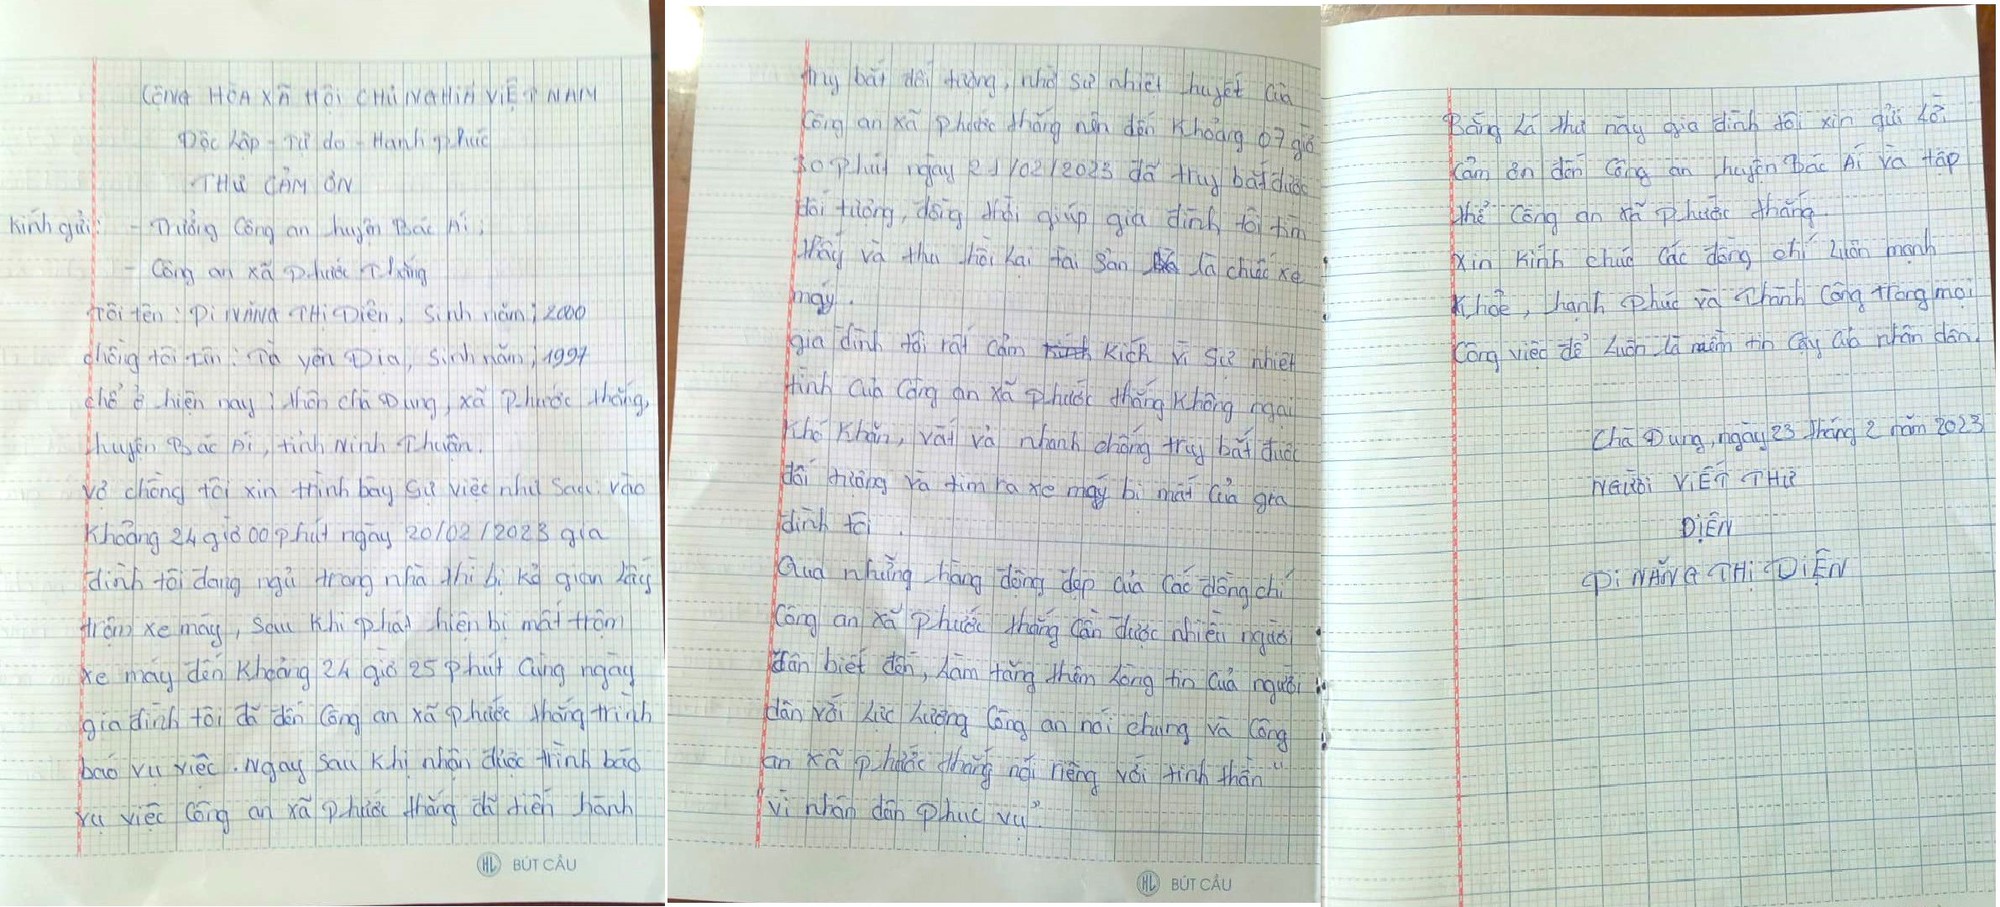 CỘNG HÒA XÃ HỘI CHỦ NGHĨA VIỆT NAM
Độc lập - Tự do - Hạnh phúc
THƯ CẢM ƠN
Kính gửi: - Trưởng Công an huyện Bác Ái;
- Công an xã Phước Thắng
Tôi tên: Pi NĂNG THỊ Diện, Sinh năm; 2000
chồng tôi tên: Tà yên Địa, Sinh năm; 1997
chổ ở hiện nay; thôn chà Đung, xã Phước thắng,
huyện Bác Ái, tỉnh Ninh Thuận.
vợ chồng tôi xin trình bày sự việc như sau: vào
khoảng 24 giờ 00 phút ngày 20/02/2023 gia
đình tôi đang ngủ trong nhà thì bị kẻ gian lấy
trộm xe máy, sau khi phát hiện bị mất trộm
xe máy đến khoảng 24 giờ 25 phút cùng ngày
gia đình tôi đã đến công an xã phước thắng trình
báo vụ việc. Ngay sau khi nhận được trình báo
vụ việc Công an xã Phước thắng đã tiến hành
HL BÚT CÂU
truy bắt đối tượng, nhờ sự nhiệt huyết của
Công an xã Phước thắng nên đến khoảng 07 giờ
30 phút ngày 21/02/2023 đã truy bắt được
đối tượng, đồng thời giúp gia đình tôi tìm
thấy và thu hồi lại tài sản là chiếc xe
máy.
gia đình tôi rất cảm kích vì sự nhiệt
tình của Công an xã Phước thắng không ngại
khó khăn, vất vả nhanh chóng truy bắt được
đối tượng và tìm ra xe máy bị mất của gia
đình tôi.
Qua những hàng động đẹp của các đồng chí
Công an xã Phước thắng cần được nhiều người
dân biết đến, làm tăng thêm lòng tin của người
dân với lực lượng công an nói chung và công
an xã phước thắng nói riêng với tinh thần "
vì nhân dân phục vụ".
HL BÚT CÂU
Bằng lá thư này gia đình tôi xin gửi lời
cảm ơn đến Công an huyện Bác Ái và tập
thể Công an xã Phước thắng.
Xin kính chúc các đồng chí luôn mạnh
khỏe, hạnh phúc và Thành công trong mọi
công việc để luôn là niềm tin cậy của nhân dân.
Chà Đung, ngày 23 tháng 2 năm 2023
NGƯỜI VIẾT THƯ
DIỆN
Pi NĂNG THỊ DIỆN